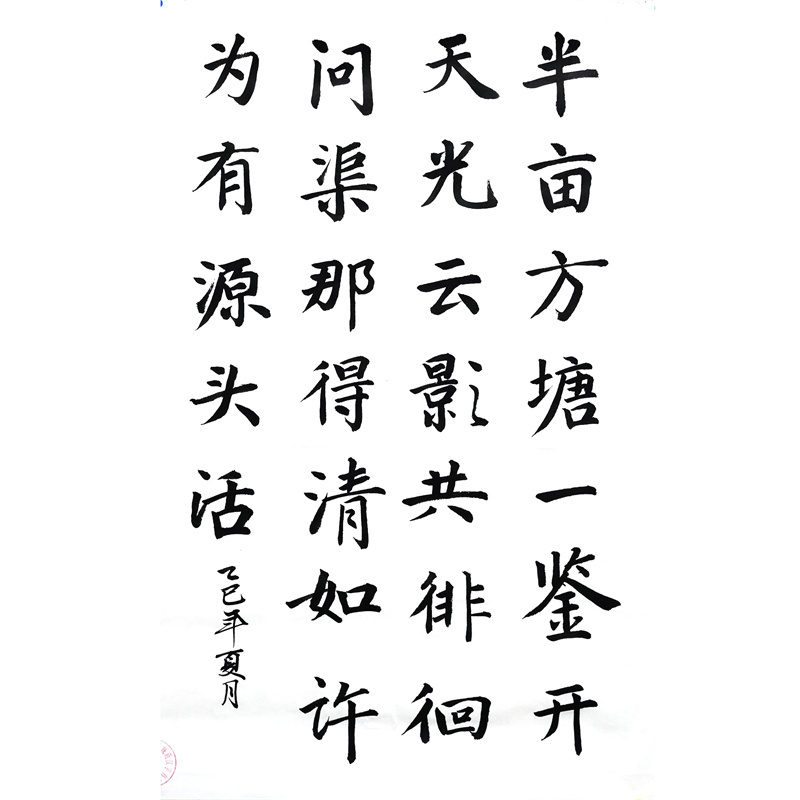 半亩方塘一鉴开
天光云影共徘徊
问渠那得清如许
为有源头活
乙巳年夏月